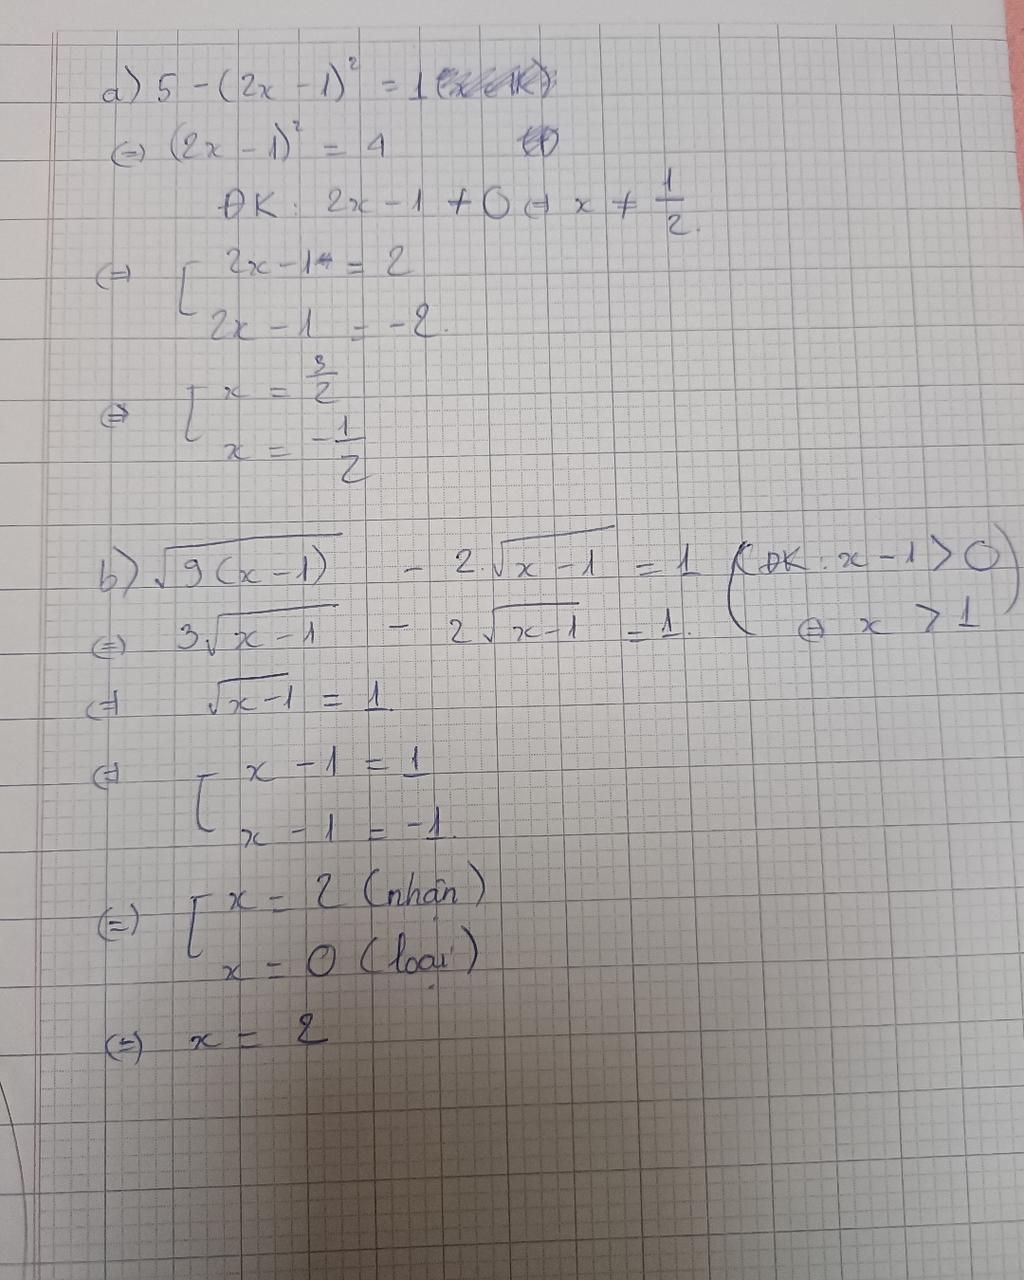 a) 5 - (2x - 1)² = 1
(=) (2x - 1)² = 4
ĐK: 2x - 1 ≠ 0 (=) x ≠ 1/2.
(=) [ 2x - 1 = 2
2x - 1 = -2.
(=) [ x = 3/2
x = -1/2
b) √9(x - 1) - 2.√x - 1 = 1 (ĐK: x - 1 > 0
(=) 3√x - 1 - 2√x - 1 = 1. (=) x > 1)
(=) √x - 1 = 1.
(=) [ x - 1 = 1
x - 1 = -1.
(=) [ x = 2 (nhận)
x = 0 (loại)
(=) x = 2